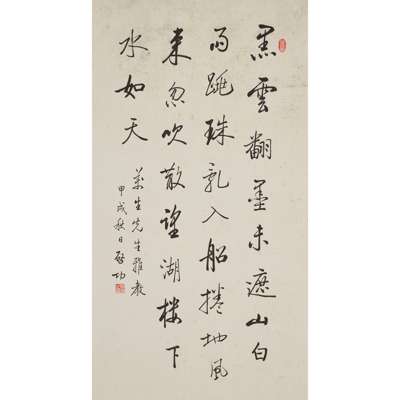 黑雲翻墨未遮山白
雨跳珠乱入船捲地風
来忽吹散望湖楼下
水如天
萬生先生雅教
甲戌秋日啓功